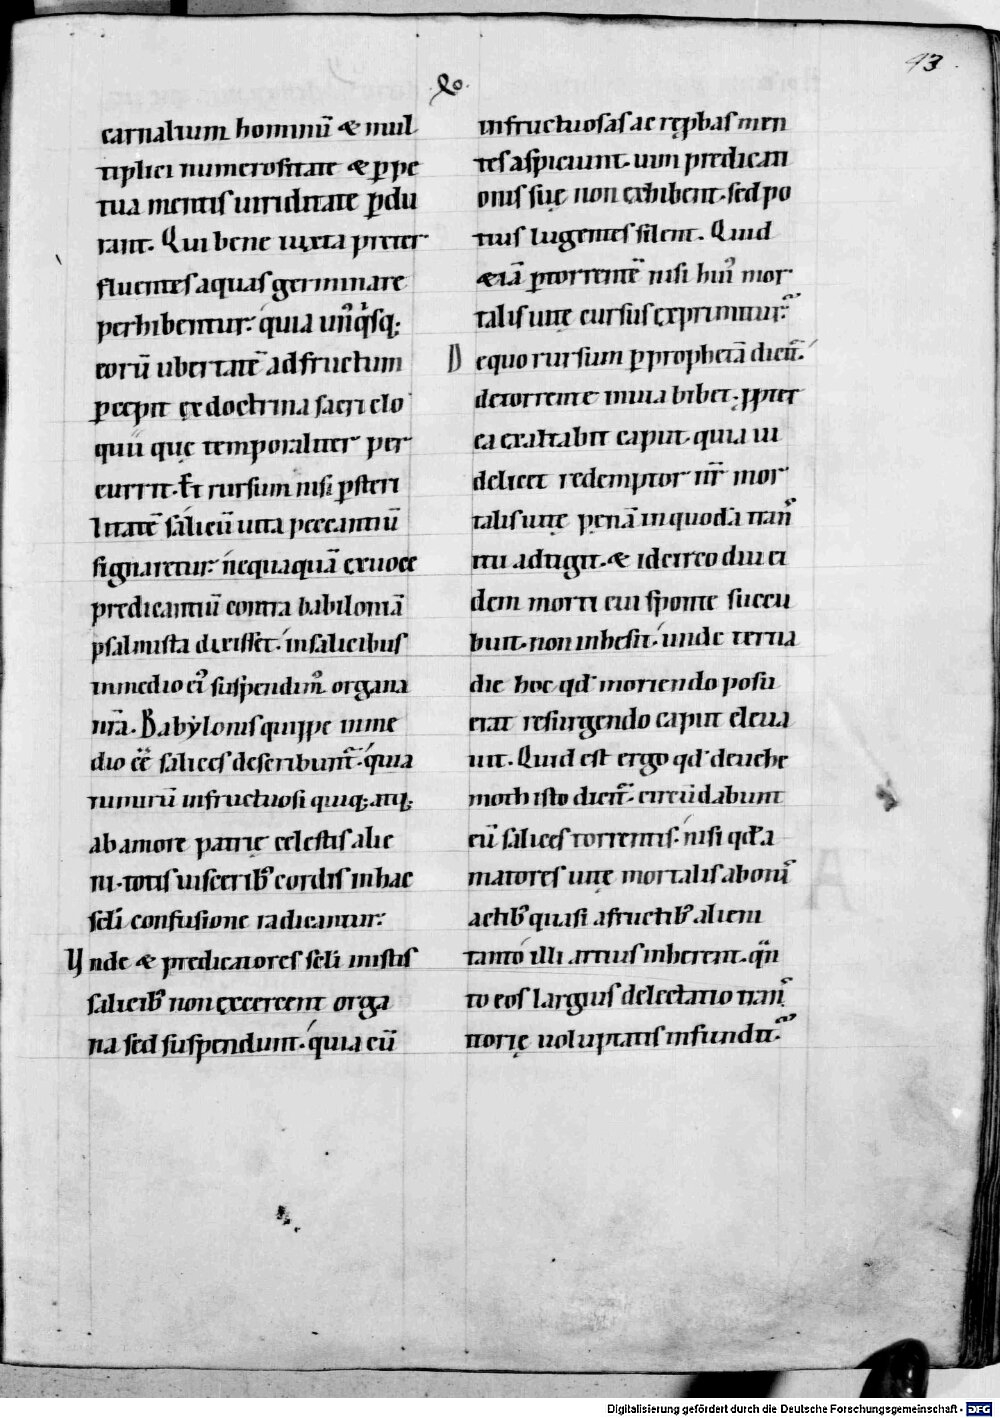 ·xo·
43
carnalium hominū & mul
tiplici numerositate & ꝑpe
tua mentis uiriditate ꝑdu
rant. Qui bene iuxta preter
fluentes aquas germinare
perhibentur: quia unꝰqͥsq;
eorū ubertatē ad fructum
ꝑcepit ex doctrina sacri elo
quii quę temporaliter per
currit. Et rursum nisi ꝑ steri
litatē salicū uita peccantiū
signaretur: nequaquā ex uoce
predicantiū contra babiloniā
psalmista dixisset. in salicibus
in medio eiꝰ suspendimꝰ organa
nr̄a. Babylonis quippe in me
dio eē salices describunt̄. quia
infructuosi quiq; atq;
ab amore patrię celestis alie
ni. totis uiscerib; cordis in hac
sc̄li confusione radicantur:
Vnde & predicatores sc̄li mistis
salicib; non exercent orga
na sed suspendunt. quia cū
infructuosas ac reprobas men
tes aspiciunt. uim predicati
onis suę non exhibent. sed po
tius lugentes silent. Quid
&iā ꝑ torrentē nisi huiꝰ mor
talis uitę cursus exprimitur:
De quo rursum ꝑ prophetā dicit̄.
de torrente in uia bibet. ꝓpter
ea exaltabit caput. quia ui
delicet redemptor nr̄ mor
talis uitę penā in quodā tran
itu adtigit. & idcirco diu ei
dem morti cui sponte succu
buit. non inhesit. unde tertia
die hoc qd moriendo posu
erat resurgendo caput eleua
uit. Quid est ergo qd de uehe
moth isto dicit̄. circūdabunt
eū salices torrentis. nisi qd a
matores uitę mortalis a boni
actib; quasi a fructib; alieni
tanto illi artius inherent. quan
to eos largius delectatio tran
torię uoluptatis infundit.
Digitalisierung gefördert durch die Deutsche Forschungsgemeinschaft - DFG